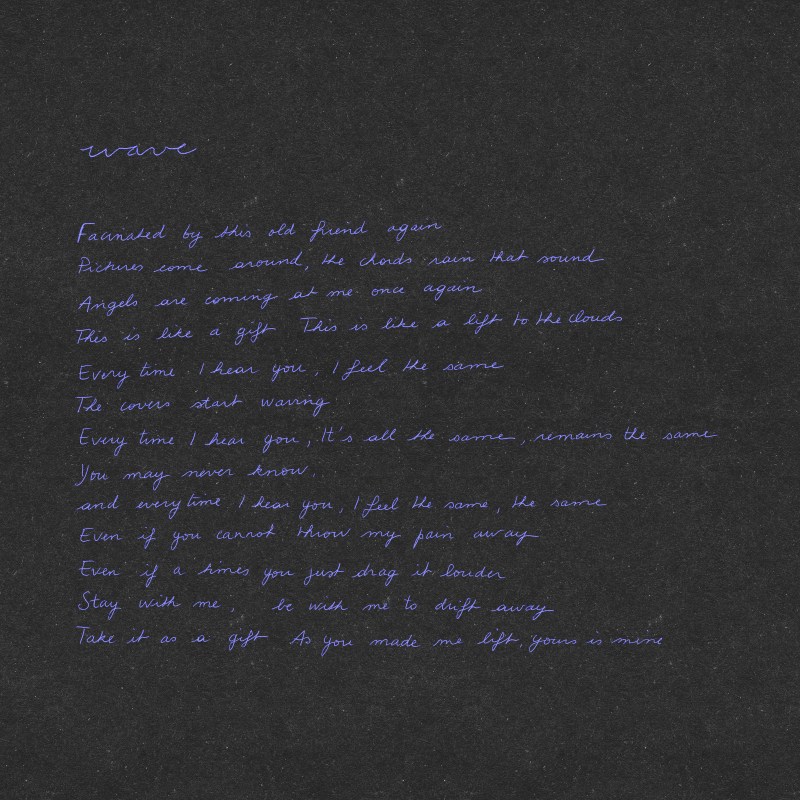 wave
Facinated by this old friend again
Pictures come around, the chords rain that sound
Angels are coming at me once again
This is like a gift This is like a lift to the clouds
Every time I hear you, I feel the same
The covers start waving
Every time I hear you, It's all the same, remains the same
You may never know,
and everytime I hear you, I feel the same, the same
Even if you cannot throw my pain away
Even if a times you just drag it louder
Stay with me, be with me to drift away
Take it as a gift As you made me lift, yours is mine